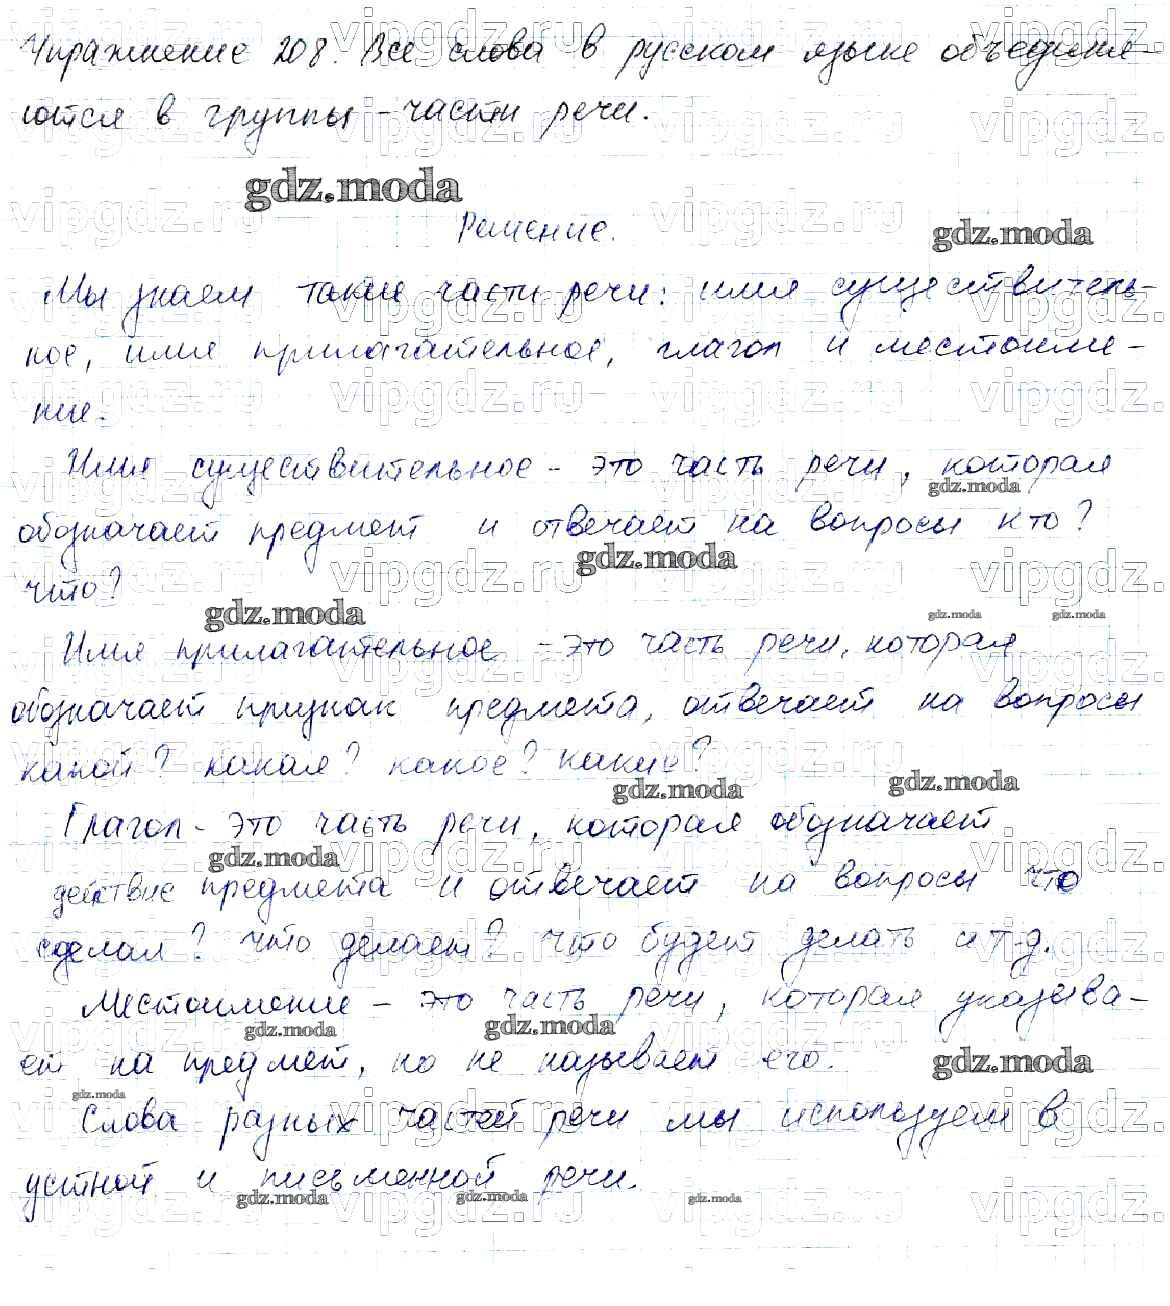 Упражнение 208. Все слова в русском языке объединя-
ются в группы - части речи.
gdz.moda
Решение.
gdz.moda
Мы знаем такие части речи: имя существитель-
ное, имя прилагательное, глагол и местоиме-
ние.
Имя существительное - это часть речи, которая
gdz.moda
обозначает предмет и отвечает на вопросы кто?
gdz.moda
что?
gdz.moda
gdz.moda gdz.moda
Имя прилагательное - это часть речи, которая
обозначает признак предмета, отвечает на вопросы
какой? какая? какое? какие?
gdz.moda gdz.moda
Глагол - это часть речи, которая обозначает
gdz.moda
действие предмета и отвечает на вопросы что
сделал? что делает? что будет делать и т.д.
Местоимение - это часть речи, которая указыва-
gdz.moda gdz.moda
ет на предмет, но не называет его.
gdz.moda
gdz.moda
Слова разных частей речи мы используем в
устной и письменной речи.
gdz.moda gdz.moda gdz.moda
vipgdz.ru